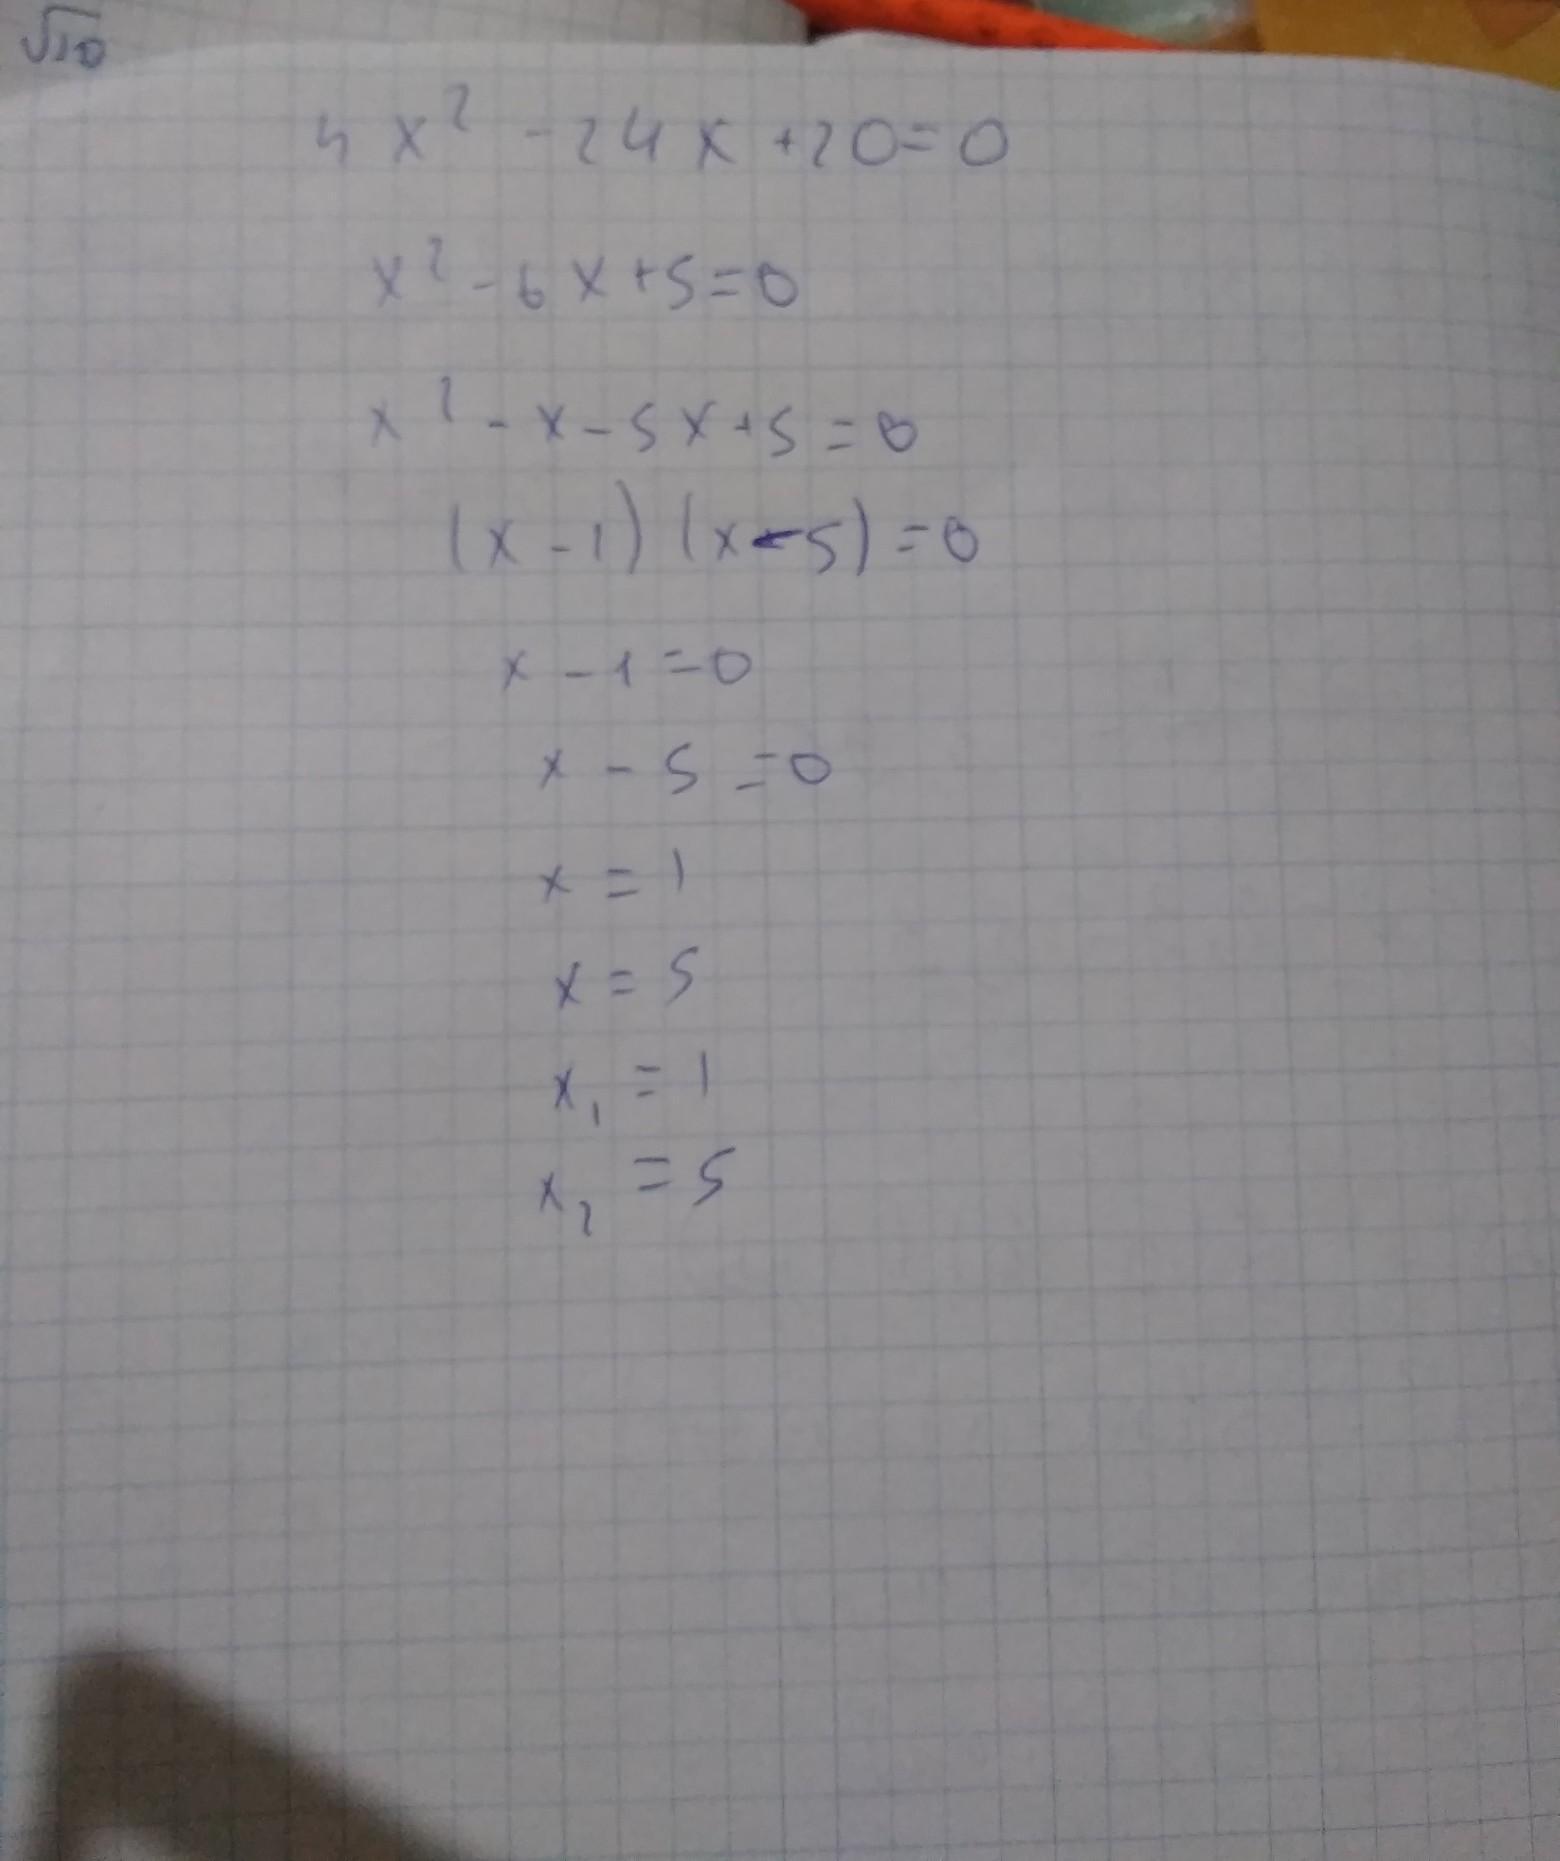 √10
4x² - 24x + 20 = 0
x² - 6x + 5 = 0
x² - x - 5x + 5 = 0
(x - 1) (x - 5) = 0
x - 1 = 0
x - 5 = 0
x = 1
x = 5
x₁ = 1
x₂ = 5